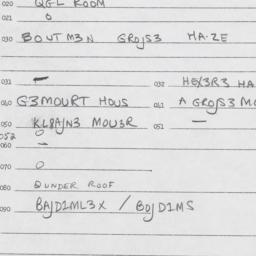 020 QGL ROOM
021 O
030 BOUTM3N GROJS3 HA-ZE
031 — 032 HEX3R3 HA
040 G3MOURT HOUS 041 A GROJS3 MO
050 KL8AJN3 MOU3R 051 —
052 O
060 —
070 O
080 QUNDER ROOF
090 BAJD1ML3X / BOJD1MS